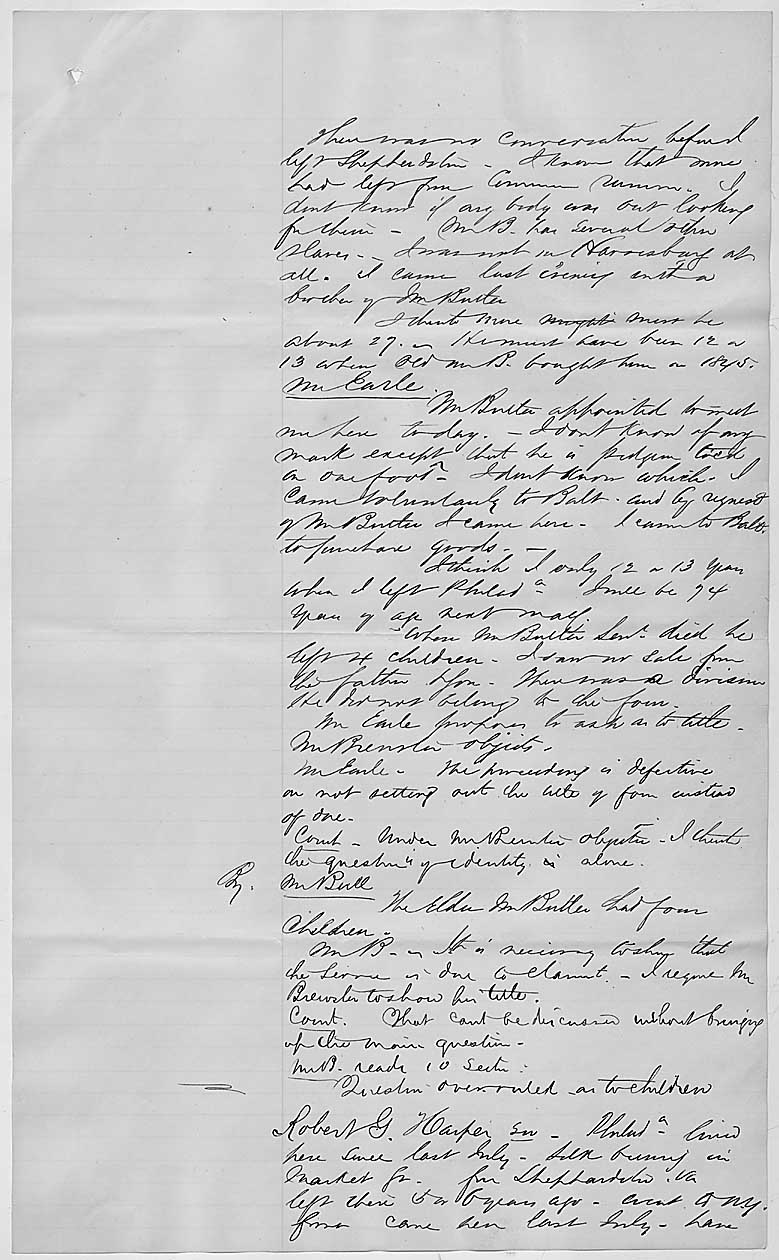 There was no conversation before I
left Shepherdstn - I know that some
had left from Common rumor. I
dont know if any body was out looking
for them - Mr B. has several other
slaves - I was not in Harrisburg at
all. I came last evening with a
brother of Mr Butler
I think must be
about 27. He must have been 12 or
13 when old Mr B. bought him in 1845.
Mr Earle.
Mr Butler appointed to meet
me here to day. - I dont know of any
mark except that he is pidgeon toed
on one foot - I dont know which. I
came voluntarily to Balt. and by request
of Mr Butler I came here - I came to Balt.
to purchase goods. -
I think I only 12 or 13 years
when I left Philada I will be 74
years of age next
When Mr Butler Senr. died he
left 4 children - I saw no sale from
the father to son. There was a division
He did not belong to the four.
Mr Earle proposes to ask as to title -
Mr Brewster objects.
Mr Earle - The proceeding is defective
in not setting out the title of four instead
of one.
Court - Under Mr Brewster objectn - I think
the question of identity is alone.
By. Mr Bull
The Elder Mr Butler had four
Children.
Mr B - It is necessary to show that
the service is due to Claimt. - I require Mr
Brewster to show his title.
Court. That cant be discussed without bringing
up the main question -
Mr B. reads 10 Sectn.
Question overruled as to children
Robert G. Harper - Philada lived
here since last July - in
Market St. from Shepherdstn. Va
left there 5 or 6 years ago - went to N.Y.
from came here last July - have